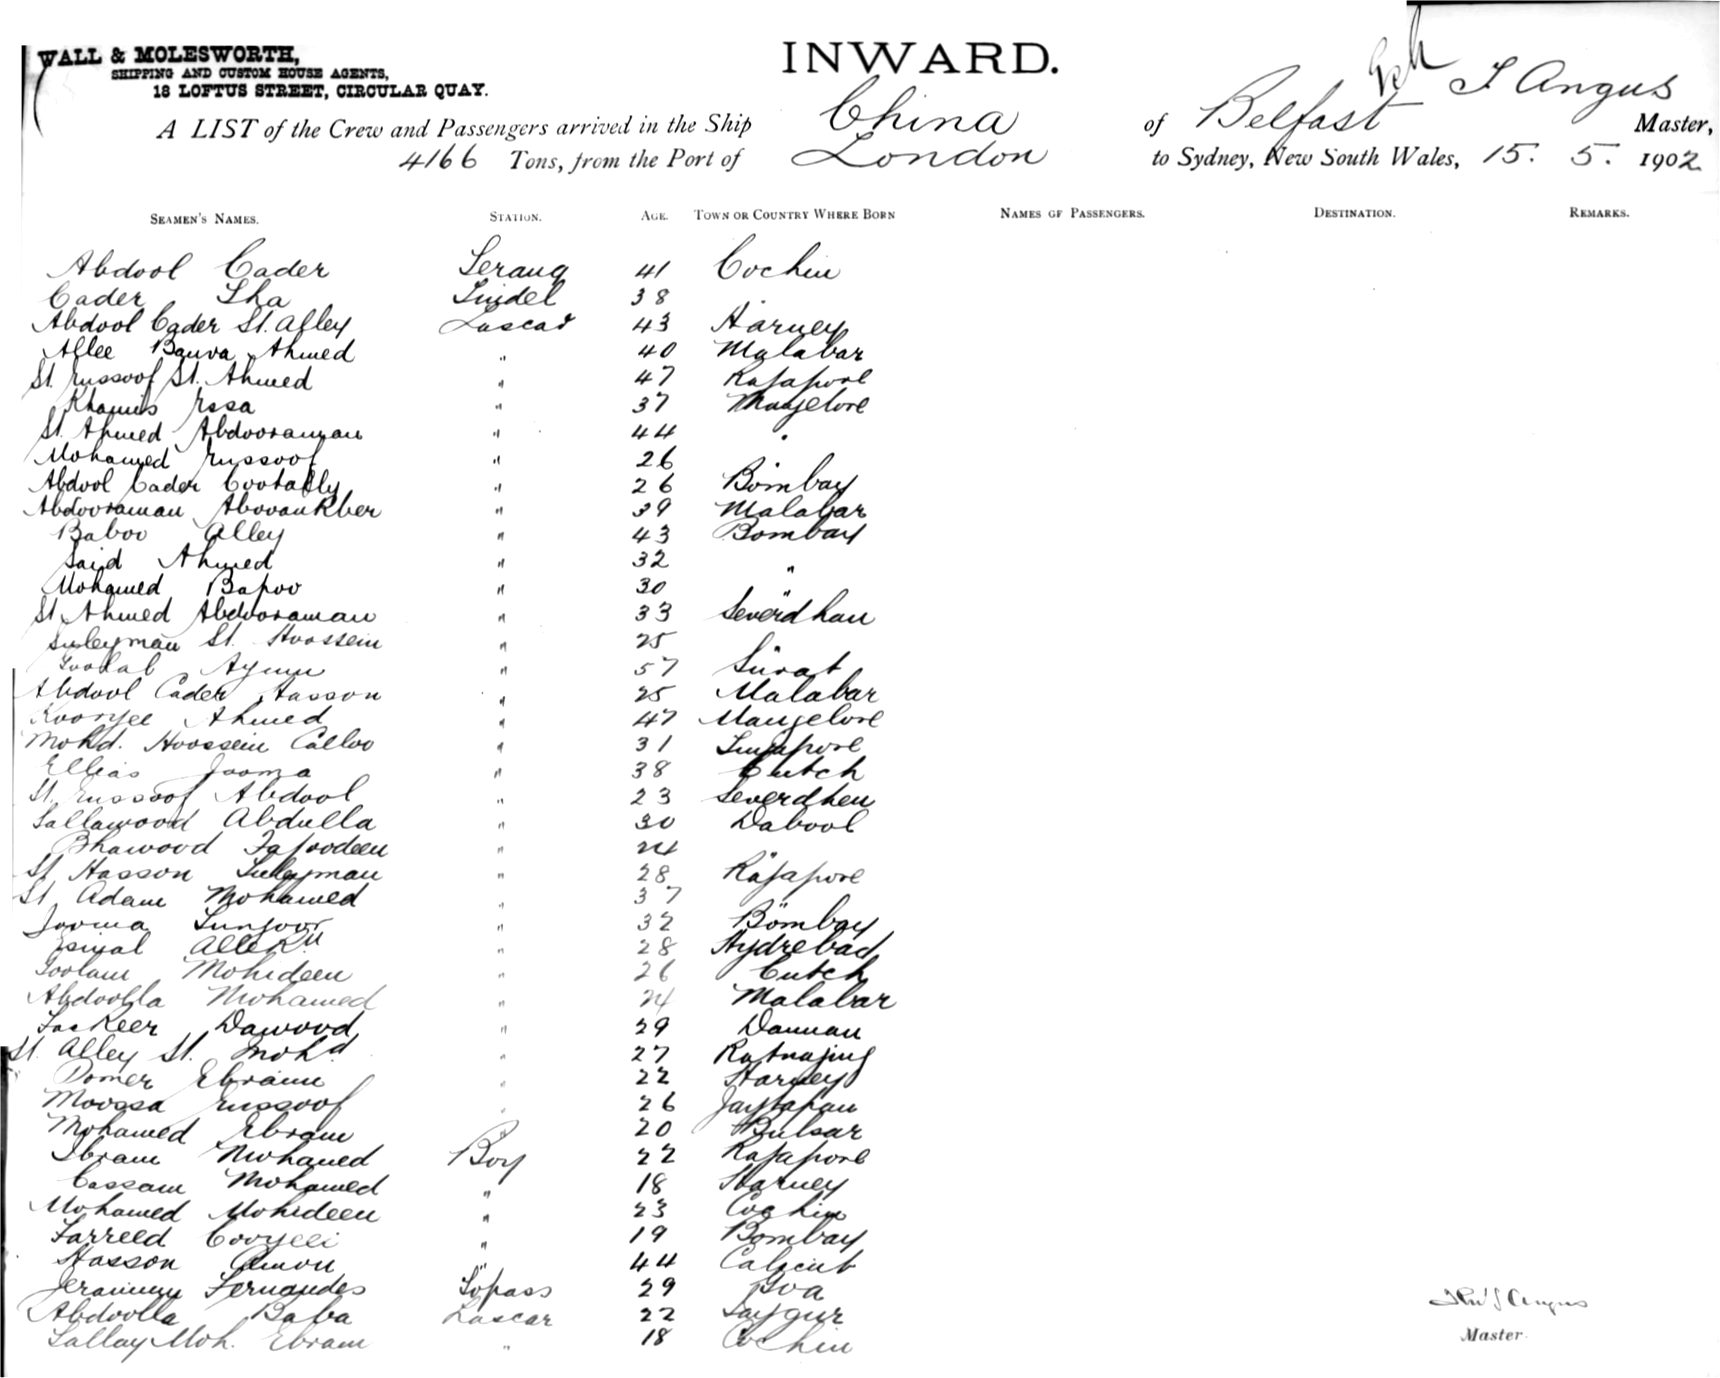 WALL & MOLESWORTH,
SHIPPING AND CUSTOM HOUSE AGENTS,
18 LOFTUS STREET, CIRCULAR QUAY.
INWARD.
A LIST of the Crew and Passengers arrived in the Ship China of Belfast T Angus Master,
4166 Tons, from the Port of London to Sydney, New South Wales, 15. 5. 1902
SEAMEN'S NAMES. STATION. AGE. TOWN OR COUNTRY WHERE BORN NAMES OF PASSENGERS. DESTINATION. REMARKS.
Abdool Cader Serang 41 Cochin
Cader Sha Tindel 38
Abdool Cader St. Alley Lascar 43 Harney
Allee Bauva Ahmed " 40 Malabar
St. Eussoof St. Ahmed " 47 Rajapore
Khamis Essa " 37 Mangelore
St. Ahmed Abdooraman " 44 "
Mohamed Eussoof " 26
Abdool Cader Cootably " 26 Bombay
Abdooraman " 39 Malabar
Baboo Alley " 43 Bombay
Said Ahmed " 32 "
Mohamed Bapoo " 30 "
St Ahmed Abdooraman " 33 Severdhan
Suleyman St. Hoossein " 25 "
" 57 Surat
Abdool Cader Hasson " 25 Malabar
Ahmed " 47 Mangelore
Mohd. Hoossein Calloo " 31
Ellias Jooma " 38 Cutch
St. Eussoof Abdool " 23 Severdhen
Sallawood Abdulla " 30 Dabool
Bhawood Tajoodeen " 24 "
St Hasson Suleyman " 28 Rajapore
St. Adam Mohamed " 37 "
Jooma " 32 Bombay
" 28 Hydrebad
Goolam Mohideen " 26 Cutch
Abdoolla Mohamed " 24 Malabar
Fackeer Dawood " 29 Daman
St. Alley St. Mohd " 27
Domer Ebraim " 22 Harney
Moossa Eussoof " 26 Jaytapan
Mohamed Ebram " 20 Bulsar
Ibram Mohamed Boy 22 Rajapore
Cassam Mohamed " 18 Harney
Mohamed Mohideen " 23 Cochin
Farreed " 19 Bombay
Hasson Amon " 44 Calicut
Fernandes Topass 29 Goa
Abdoolla Baba Lascar 22
Sallay Moh. Ebram " 18 Cochin
Thos S Angus
Master.